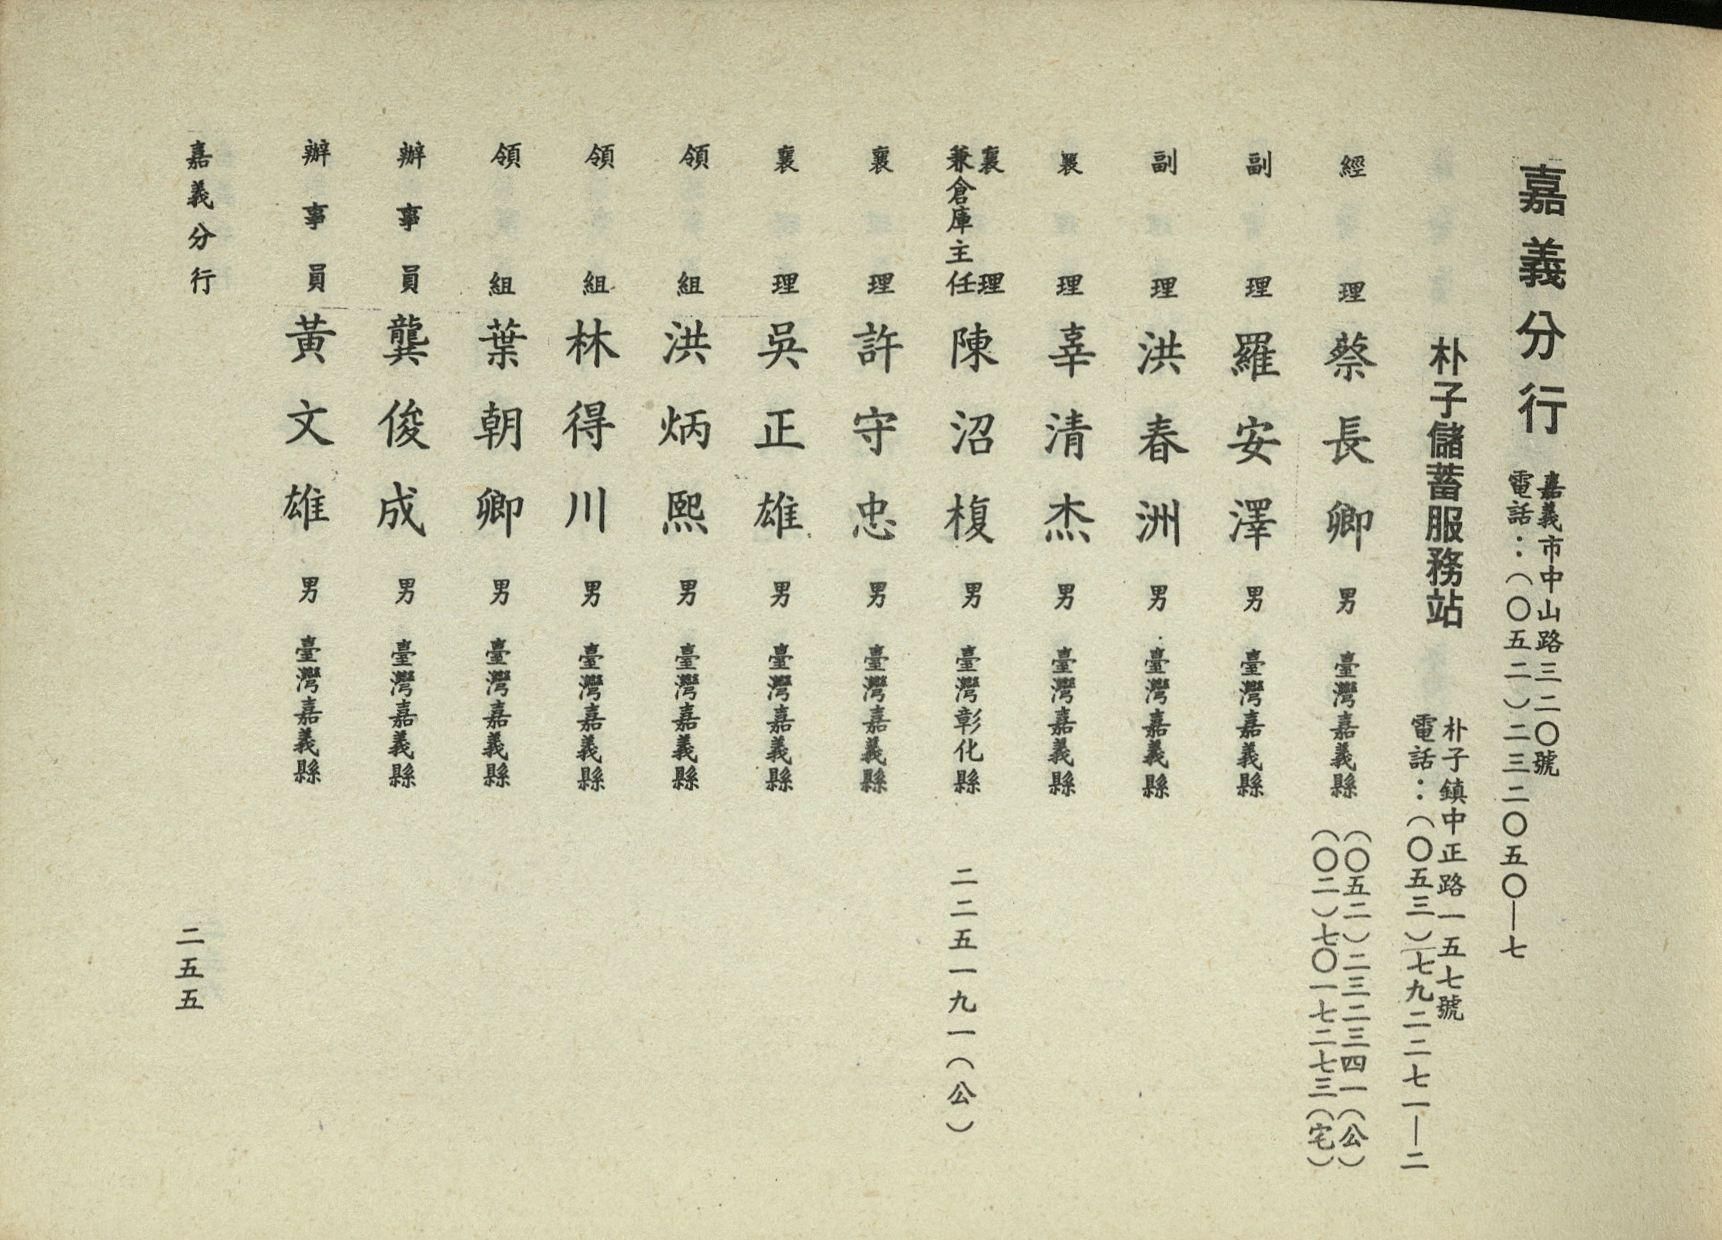 嘉義分行
嘉義市中山路三二〇號
電話：（〇五二）二三二〇五〇—七
朴子儲蓄服務站
朴子鎮中正路一五七號
電話：（〇五三）七九二二七一—二
經理 蔡長卿 男 臺灣嘉義縣 （〇五二）二三二三四一（公）
（〇二）七〇一七二七三（宅）
副理 羅安澤 男 臺灣嘉義縣
副理 洪春洲 男 臺灣嘉義縣
襄理 辜清杰 男 臺灣嘉義縣
襄理
兼倉庫主任 陳沼榎 男 臺灣彰化縣 二二五一九一（公）
襄理 許守忠 男 臺灣嘉義縣
襄理 吳正雄 男 臺灣嘉義縣
領組 洪炳熙 男 臺灣嘉義縣
領組 林得川 男 臺灣嘉義縣
領組 葉朝卿 男 臺灣嘉義縣
辦事員 龔俊成 男 臺灣嘉義縣
辦事員 黃文雄 男 臺灣嘉義縣
嘉義分行
二五五